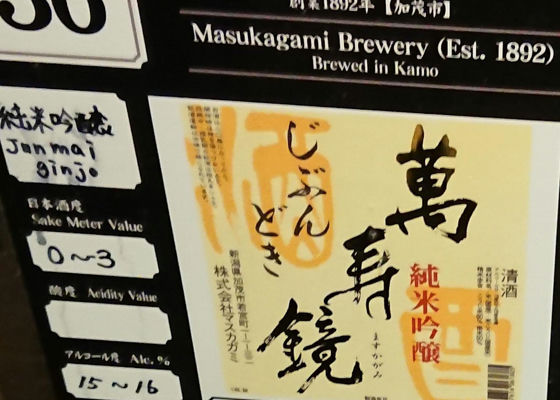 創業1892年【加茂市】
Masukagami Brewery (Est. 1892)
Brewed in Kamo
純米吟醸
Junmai
ginjo
日本酒度
Sake Meter Value
0~3
酸度 Acidity Value
アルコール度 Alc. %
15~16
萬寿鏡
ますかがみ
じぶんどき
純米吟醸
清酒
新潟県加茂市若宮町一丁目一番一号
株式会社マスカガミ